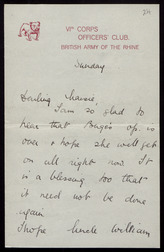 VIth CORPS
OFFICERS' CLUB.
BRITISH ARMY OF THE RHINE
Sunday
Darling
I am so glad to
hear that op. is
over & hope she will get
on all right now. It
is a blessing too that
it need not be done
again.
I hope Uncle William